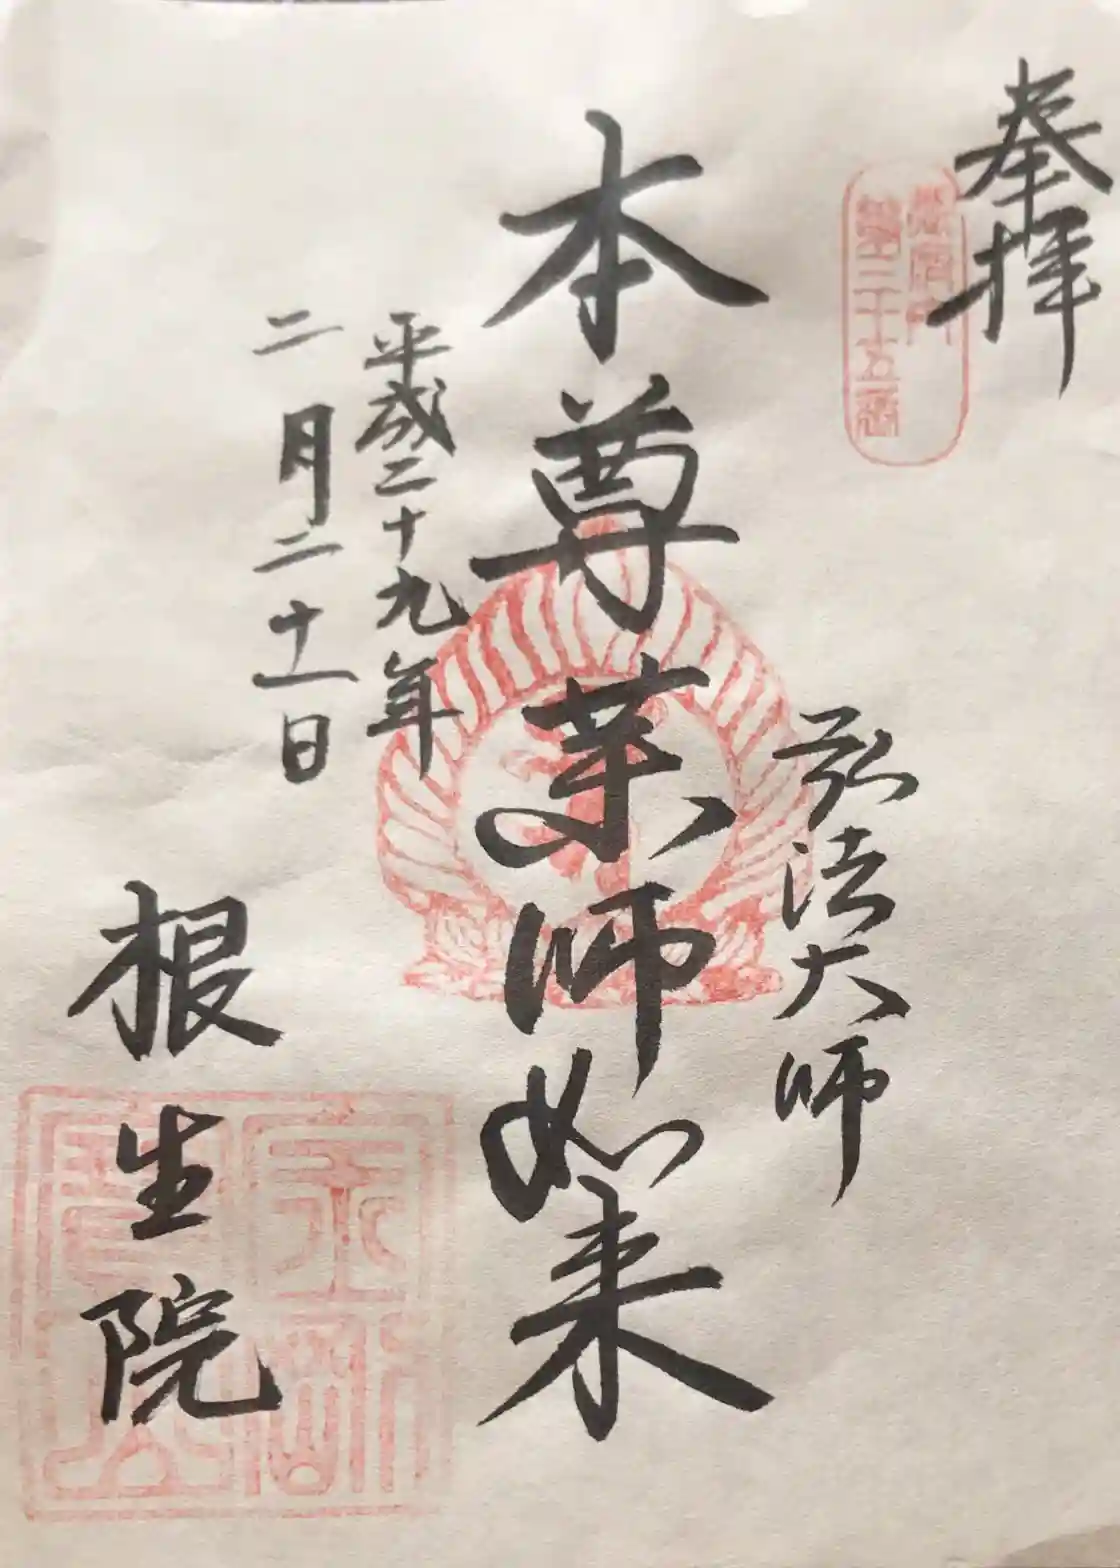 奉拝
第三十五番
弘法大師
本尊薬師如来
平成二十九年
二月二十一日
根生院